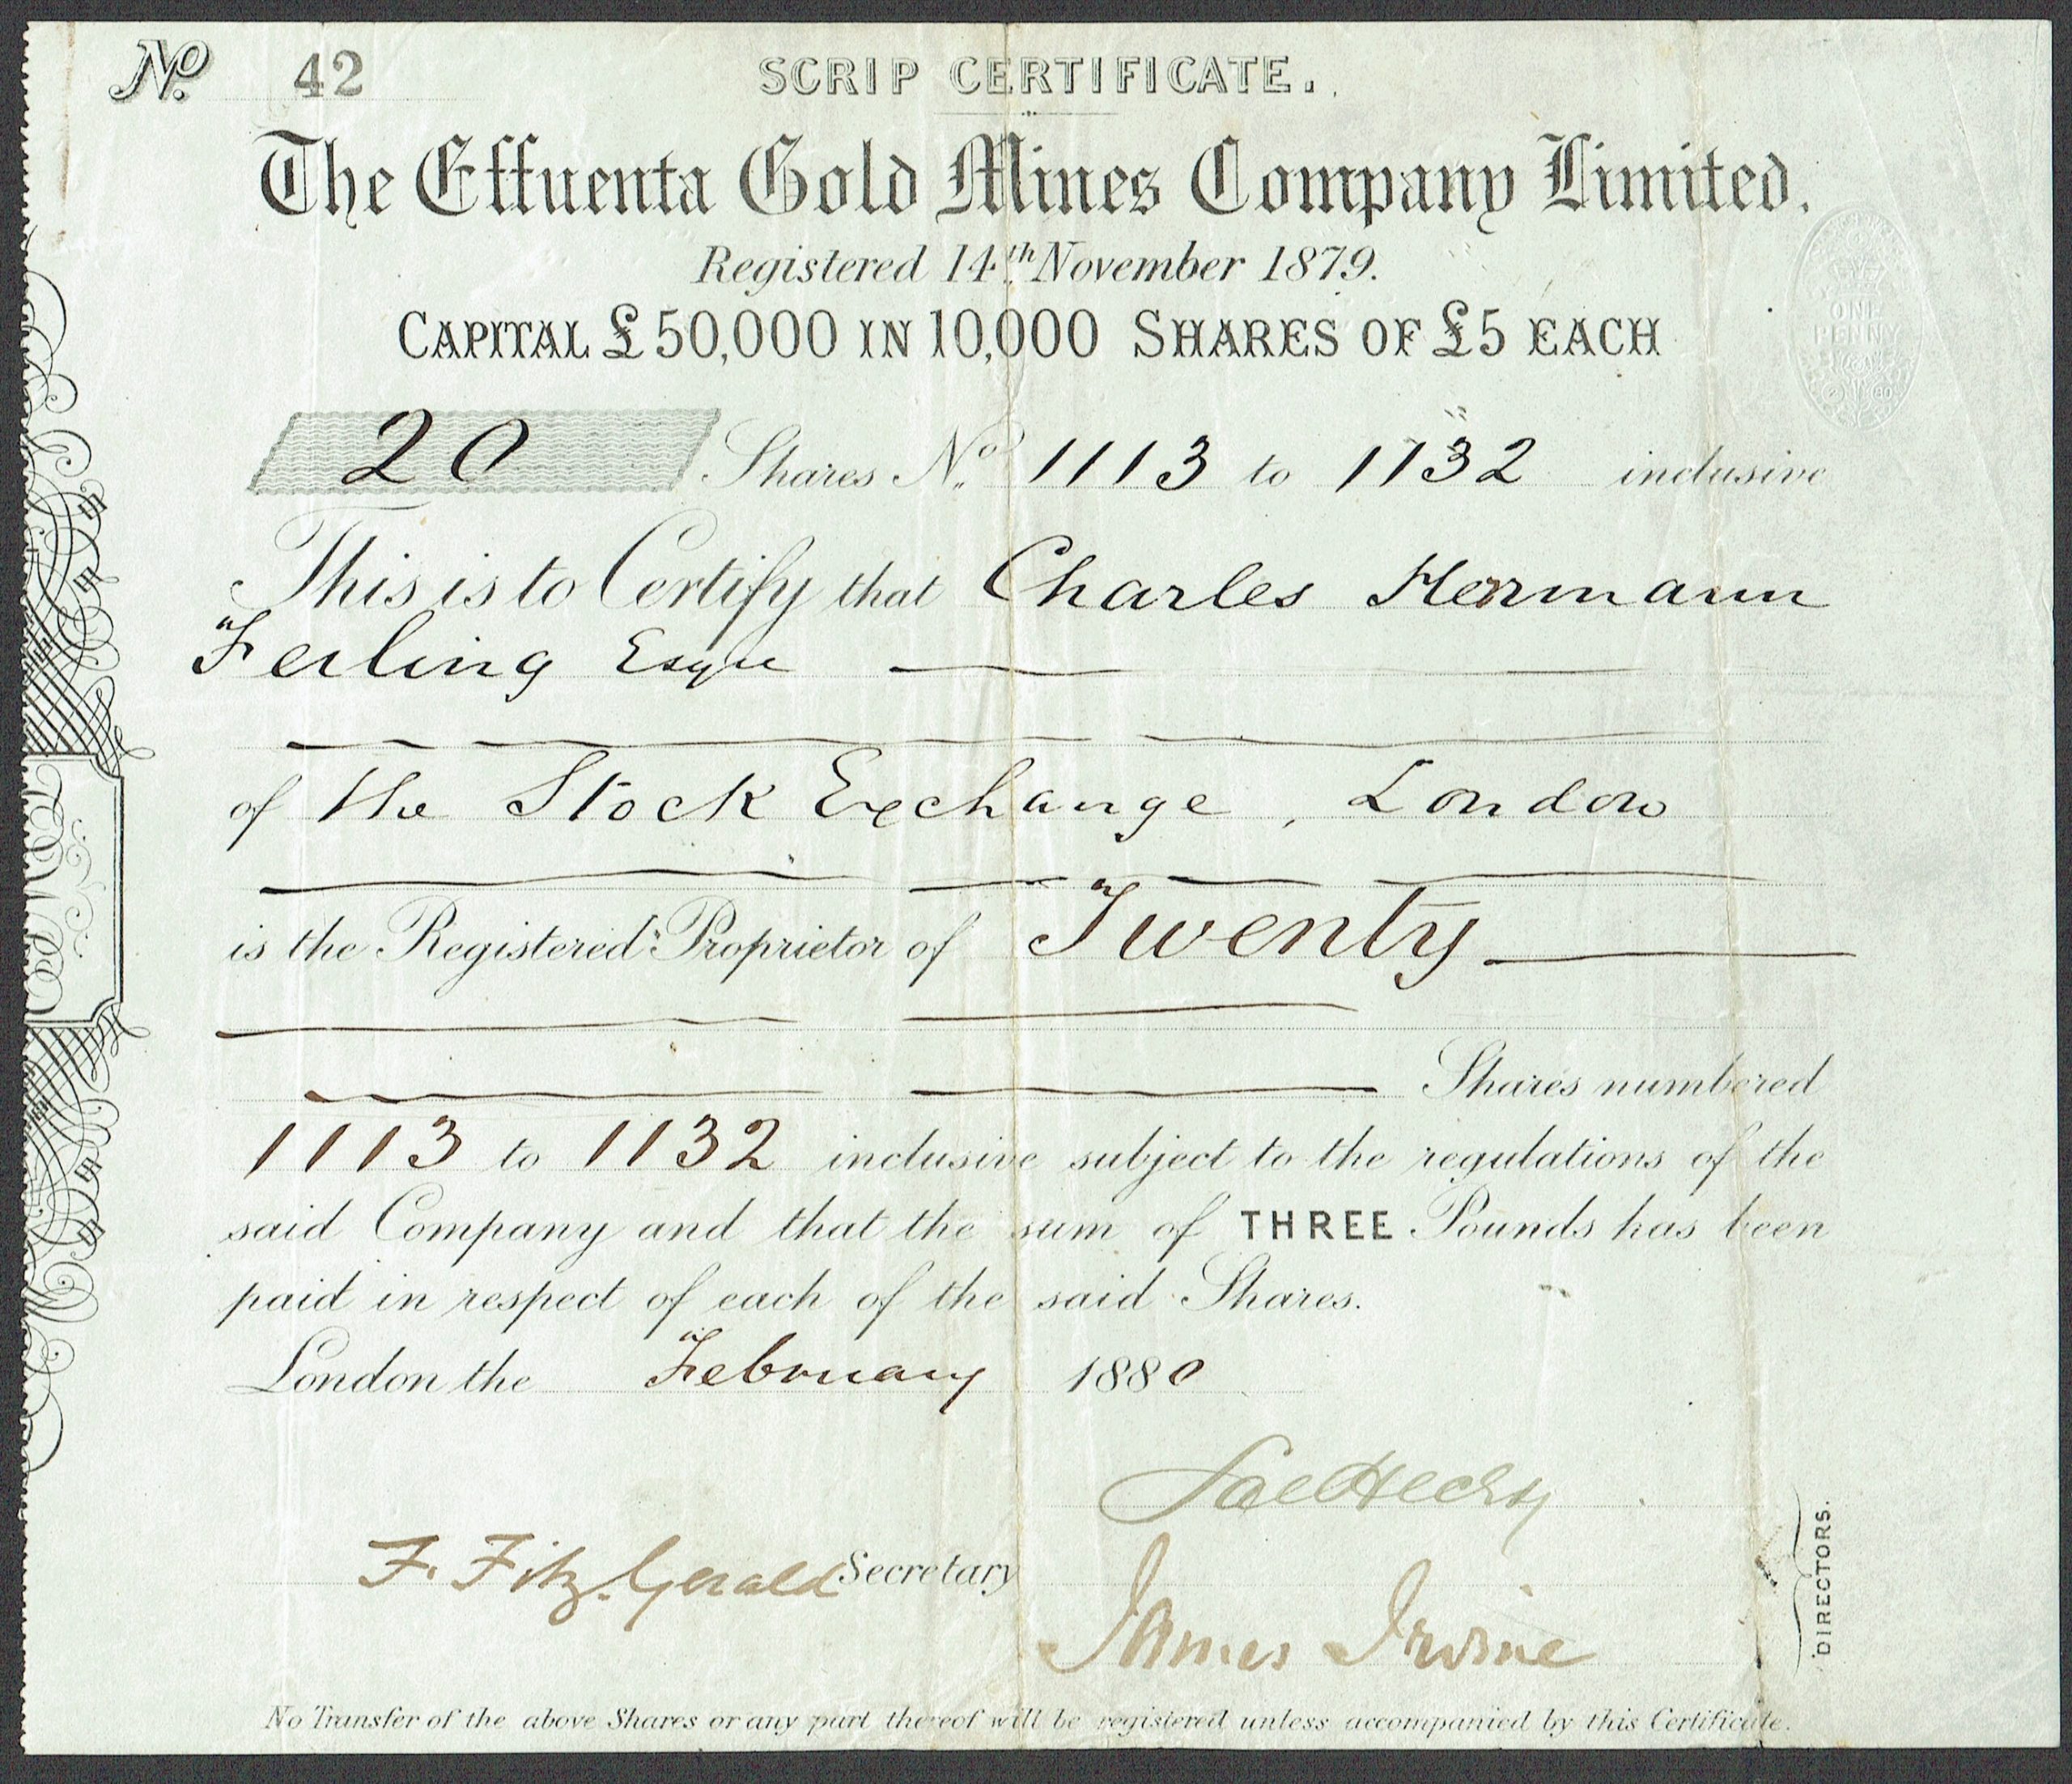 No. 42
SCRIP CERTIFICATE.
The Effuenta Gold Mines Company Limited.
Registered 14th November 1879.
CAPITAL £50,000 IN 10,000 SHARES OF £5 EACH
ONE
PENNY
20 Shares No. 1113 to 1132 inclusive
This is to Certify that Charles Hermann
Feiling Esqre
of the Stock Exchange, London
is the Registered Proprietor of Twenty
Shares numbered
1113 to 1132 inclusive subject to the regulations of the
said Company and that the sum of THREE Pounds has been
paid in respect of each of the said Shares.
London the February 1880
F. FitzGerald Secretary
James Irvine
DIRECTORS.
No Transfer of the above Shares or any part thereof will be registered unless accompanied by this Certificate.